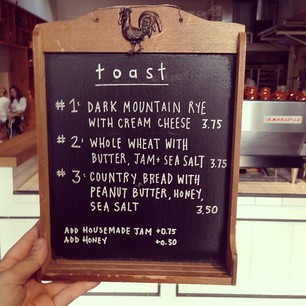 toast
#1: DARK MOUNTAIN RYE
WITH CREAM CHEESE 3.75
#2: WHOLE WHEAT WITH
BUTTER, JAM + SEA SALT 3.75
#3: COUNTRY BREAD WITH
PEANUT BUTTER, HONEY,
SEA SALT 3.50
ADD HOUSEMADE JAM +0.75
ADD HONEY +0.50